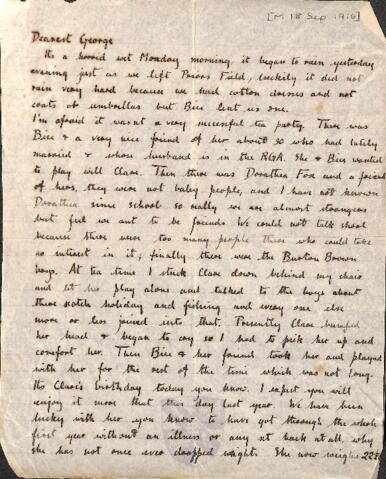 [M 18 Sep 1916]
Dearest George
Its a horrid wet Monday morning, it began to rain yesterday
evening just as we left Priors Field, luckily it did not
rain very hard because we had cotton dresses and not
coats or umbrellas but Bice lent us one.
I'm afraid it wasnt a very successful tea party. There was
Bice & a very nice friend of her about 30 who had lately
married & whose husband is in the RGA. She & Bice wanted
to play will Clare. Then there was Dorathea Fox and a friend
of hers, they were not baby people, and I have not known
Dorathea since school so really we are almost strangers
but feel we aut to be friends. We could not talk shool
because there were too many people there who could take
no intrest in it; finally there were the Buxton Brown
boys. At tea time I stuck Clare down behind my chair
and let her play alone and talked to the boys about
there scotch holiday and fishing and every one else
more or less joined into that. Presently Clare bumped
her head & began to cry so I had to pick her up and
comfort her. Then Bice & her friend took her and played
with her for the rest of the time which was not long.
Its Clare's birthday today you know. I expect you will
enjoy it more that this day last year. We have been
lucky with her you know to have got through the whole
first year without an illness or any set back at all, why
she has not once ever dropped weight. She now weighs 22